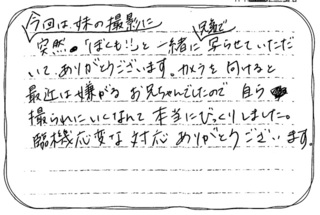 今回は、妹の撮影に
突然。「ぼくも！」と一緒に兄弟で写らせていただ
いて、ありがとうございます。カメラを向けると
最近は嫌がるお兄ちゃんでしたので自ら
撮られにいくなんて本当にびっくりしました。
臨機応変な対応ありがとうございます。